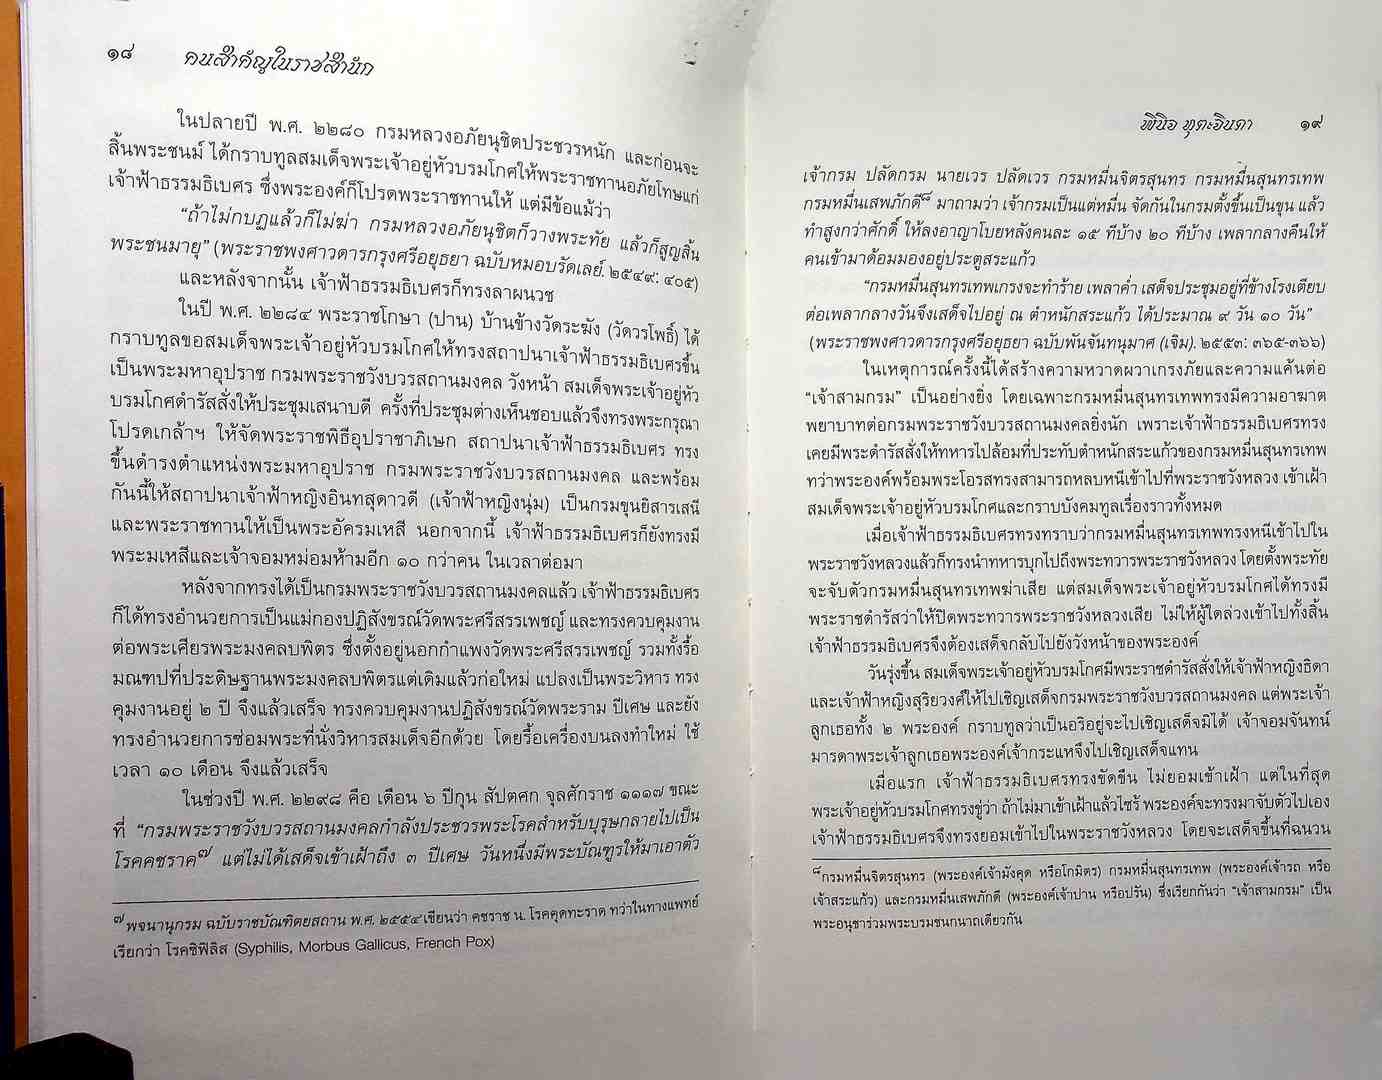 ๑๘ คนสำคัญในราชสำนัก
ในปลายปี พ.ศ. ๒๒๘๐ กรมหลวงอภัยนุชิตประชวรหนัก และก่อนจะ
สิ้นพระชนม์ ได้กราบทูลสมเด็จพระเจ้าอยู่หัวบรมโกศให้พระราชทานอภัยโทษแก่
เจ้าฟ้าธรรมธิเบศร ซึ่งพระองค์ก็โปรดพระราชทานให้ แต่มีข้อแม้ว่า
“ถ้าไม่กบฏแล้วก็ไม่ฆ่า กรมหลวงอภัยนุชิตก็วางพระทัย แล้วก็สูญสิ้น
พระชนมายุ” (พระราชพงศาวดารกรุงศรีอยุธยา ฉบับหมอบรัดเลย์. ๒๕๔๙: ๔๐๕)
และหลังจากนั้น เจ้าฟ้าธรรมธิเบศรก็ทรงลาผนวช
ในปี พ.ศ. ๒๒๘๔ พระราชโกษา (ปาน) บ้านข้างวัดระฆัง (วัดวรโพธิ์) ได้
กราบทูลขอสมเด็จพระเจ้าอยู่หัวบรมโกศให้ทรงสถาปนาเจ้าฟ้าธรรมธิเบศรขึ้น
เป็นพระมหาอุปราช กรมพระราชวังบวรสถานมงคล วังหน้า สมเด็จพระเจ้าอยู่หัว
บรมโกศดำรัสสั่งให้ประชุมเสนาบดี ครั้งที่ประชุมต่างเห็นชอบแล้วจึงทรงพระกรุณา
โปรดเกล้าฯ ให้จัดพระราชพิธีอุปราชาภิเษก สถาปนาเจ้าฟ้าธรรมธิเบศร ทรง
ขึ้นดำรงตำแหน่งพระมหาอุปราช กรมพระราชวังบวรสถานมงคล และพร้อม
กันนี้ให้สถาปนาเจ้าฟ้าหญิงอินทสุดาวดี (เจ้าฟ้าหญิงนุ่ม) เป็นกรมขุนยิสารเสนี
และพระราชทานให้เป็นพระอัครมเหสี นอกจากนี้ เจ้าฟ้าธรรมธิเบศรก็ยังทรงมี
พระมเหสีและเจ้าจอมหม่อมห้ามอีก ๑๐ กว่าคน ในเวลาต่อมา
หลังจากทรงได้เป็นกรมพระราชวังบวรสถานมงคลแล้ว เจ้าฟ้าธรรมธิเบศร
ก็ได้ทรงอำนวยการเป็นแม่กองปฏิสังขรณ์วัดพระศรีสรรเพชญ์ และทรงควบคุมงาน
ต่อพระเศียรพระมงคลบพิตร ซึ่งตั้งอยู่นอกกำแพงวัดพระศรีสรรเพชญ์ รวมทั้งรื้อ
มณฑปที่ประดิษฐานพระมงคลบพิตรแต่เดิมแล้วก่อใหม่ แปลงเป็นพระวิหาร ทรง
คุมงานอยู่ ๒ ปี จึงแล้วเสร็จ ทรงควบคุมงานปฏิสังขรณ์วัดพระราม ปีเศษ และยัง
ทรงอำนวยการซ่อมพระที่นั่งวิหารสมเด็จอีกด้วย โดยรื้อเครื่องบนลงทำใหม่ ใช้
เวลา ๑๐ เดือน จึงแล้วเสร็จ
ในช่วงปี พ.ศ. ๒๒๙๘ คือ เดือน ๖ ปีกุน สัปตศก จุลศักราช ๑๑๑๗ ขณะ
ที่ “กรมพระราชวังบวรสถานมงคลกำลังประชวรพระโรคสำหรับบุรุษกลายไปเป็น
โรคคชราค๗ แต่ไม่ได้เสด็จเข้าเฝ้าถึง ๓ ปีเศษ วันหนึ่งมีพระบัณฑูรให้มาเอาตัว
๗ พจนานุกรม ฉบับราชบัณฑิตยสถาน พ.ศ. ๒๕๕๔ เขียนว่า คชราช น. โรคคุดทะราด ทว่าในทางแพทย์
เรียกว่า โรคซิฟิลิส (Syphilis, Morbus Gallicus, French Pox)
พินิจ หุตะจินดา ๑๙
เจ้ากรม ปลัดกรม นายเวร ปลัดเวร กรมหมื่นจิตรสุนทร กรมหมื่นสุนทรเทพ
กรมหมื่นเสพภักดี๘ มาถามว่า เจ้ากรมเป็นแต่หมื่น จัดกันในกรมตั้งขึ้นเป็นขุน แล้ว
ทำสูงกว่าศักดิ์ ให้ลงอาญาโบยหลังคนละ ๑๕ ทีบ้าง ๒๐ ทีบ้าง เพลากลางคืนให้
คนเข้ามาด้อมมองอยู่ประตูสระแก้ว
“กรมหมื่นสุนทรเทพเกรงจะทำร้าย เพลาค่ำ เสด็จประชุมอยู่ที่ข้างโรงเตียบ
ต่อเพลากลางวันจึงเสด็จไปอยู่ ณ ตำหนักสระแก้ว ได้ประมาณ ๙ วัน ๑๐ วัน”
(พระราชพงศาวดารกรุงศรีอยุธยา ฉบับพันจันทนุมาศ (เจิม). ๒๕๕๓: ๓๖๕-๓๖๖)
ในเหตุการณ์ครั้งนี้ได้สร้างความหวาดผวาเกรงภัยและความแค้นต่อ
“เจ้าสามกรม” เป็นอย่างยิ่ง โดยเฉพาะกรมหมื่นสุนทรเทพทรงมีความอาฆาต
พยาบาทต่อกรมพระราชวังบวรสถานมงคลยิ่งนัก เพราะเจ้าฟ้าธรรมธิเบศรทรง
เคยมีพระดำรัสสั่งให้ทหารไปล้อมที่ประทับตำหนักสระแก้วของกรมหมื่นสุนทรเทพ
ทว่าพระองค์พร้อมพระโอรสทรงสามารถหลบหนีเข้าไปที่พระราชวังหลวง เข้าเฝ้า
สมเด็จพระเจ้าอยู่หัวบรมโกศและกราบบังคมทูลเรื่องราวทั้งหมด
เมื่อเจ้าฟ้าธรรมธิเบศรทรงทราบว่ากรมหมื่นสุนทรเทพทรงหนีเข้าไปใน
พระราชวังหลวงแล้วก็ทรงนำทหารบุกไปถึงพระทวารพระราชวังหลวง โดยตั้งพระทัย
จะจับตัวกรมหมื่นสุนทรเทพฆ่าเสีย แต่สมเด็จพระเจ้าอยู่หัวบรมโกศได้ทรงมี
พระราชดำรัสว่าให้ปิดพระทวารพระราชวังหลวงเสีย ไม่ให้ผู้ใดล่วงเข้าไปทั้งสิ้น
เจ้าฟ้าธรรมธิเบศรจึงต้องเสด็จกลับไปยังวังหน้าของพระองค์
วันรุ่งขึ้น สมเด็จพระเจ้าอยู่หัวบรมโกศมีพระราชดำรัสสั่งให้เจ้าฟ้าหญิงธิดา
และเจ้าฟ้าหญิงสุริยวงศ์ให้ไปเชิญเสด็จกรมพระราชวังบวรสถานมงคล แต่พระเจ้า
ลูกเธอทั้ง ๒ พระองค์ กราบทูลว่าเป็นอริอยู่จะไปเชิญเสด็จมิได้ เจ้าจอมจันทน์
มารดาพระเจ้าลูกเธอพระองค์เจ้ากระแหจึงไปเชิญเสด็จแทน
เมื่อแรก เจ้าฟ้าธรรมธิเบศรทรงขัดขืน ไม่ยอมเข้าเฝ้า แต่ในที่สุด
พระเจ้าอยู่หัวบรมโกศทรงขู่ว่า ถ้าไม่มาเข้าเฝ้าแล้วไซร้ พระองค์จะทรงมาจับตัวไปเอง
เจ้าฟ้าธรรมธิเบศรจึงทรงยอมเข้าไปในพระราชวังหลวง โดยจะเสด็จขึ้นที่ฉนวน
๘กรมหมื่นจิตรสุนทร (พระองค์เจ้ามังคุด หรือโกมิตร) กรมหมื่นสุนทรเทพ (พระองค์เจ้ารถ หรือ
เจ้าสระแก้ว) และกรมหมื่นเสพภักดี (พระองค์เจ้าปาน หรือปรัน) ซึ่งเรียกกันว่า “เจ้าสามกรม” เป็น
พระอนุชาร่วมพระบรมชนกนาถเดียวกัน